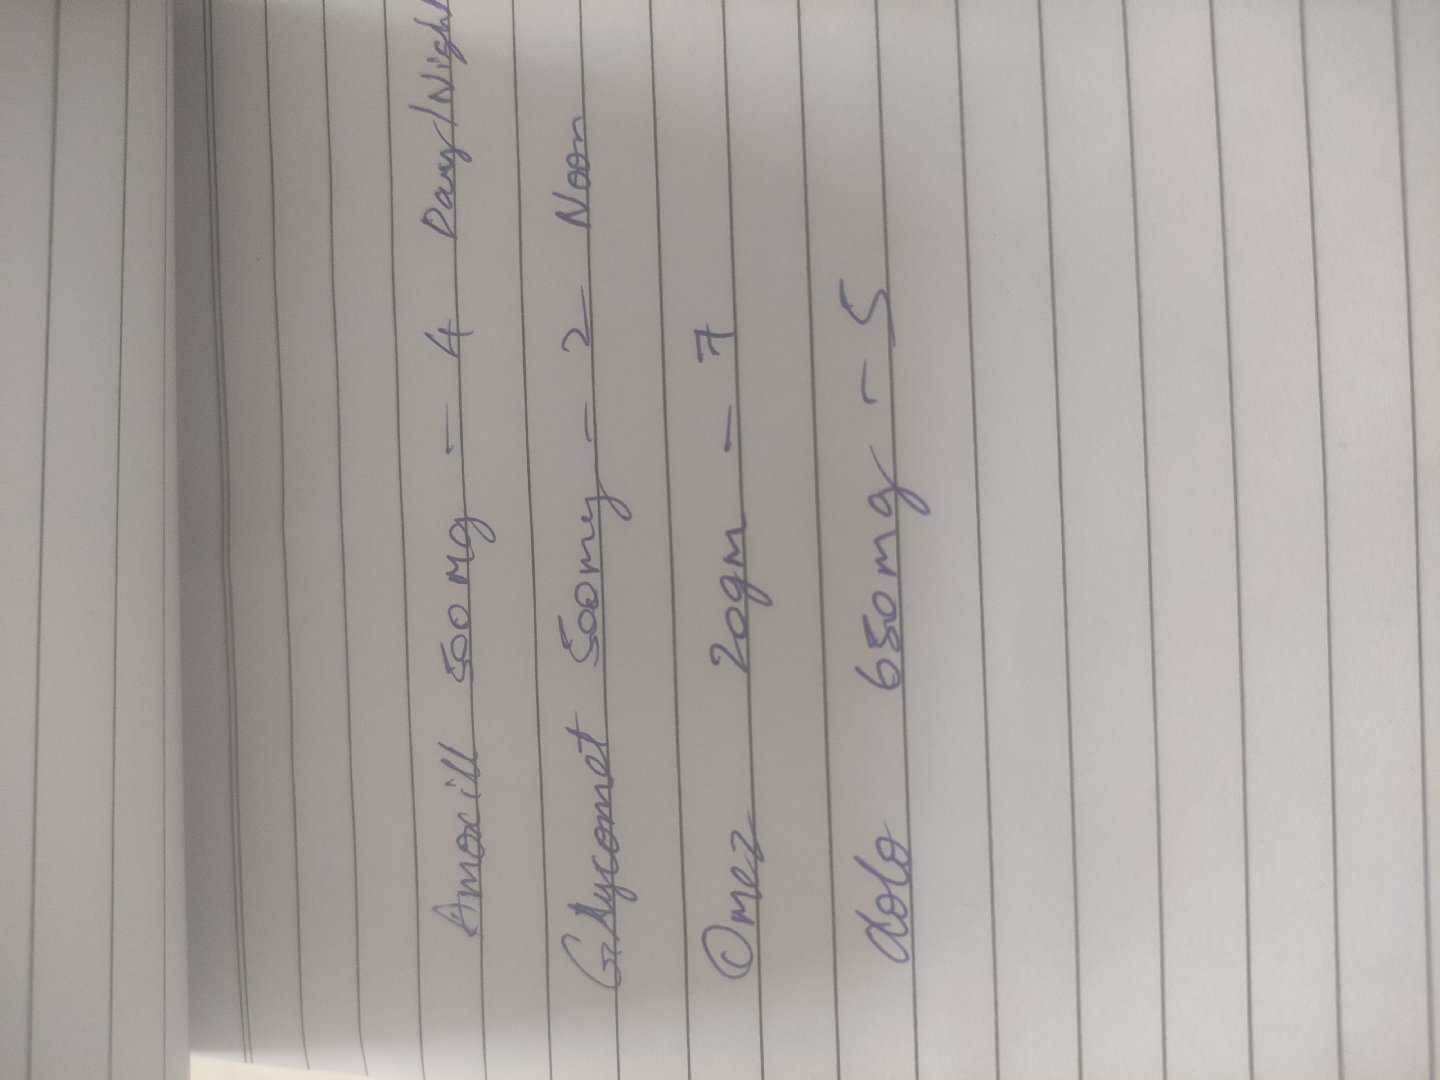 Amoxill 500 Mg - 4 Day/Night
Glycomet 500mg - 2 Noon
Omez 20gm - 7
dolo 650mg - 5